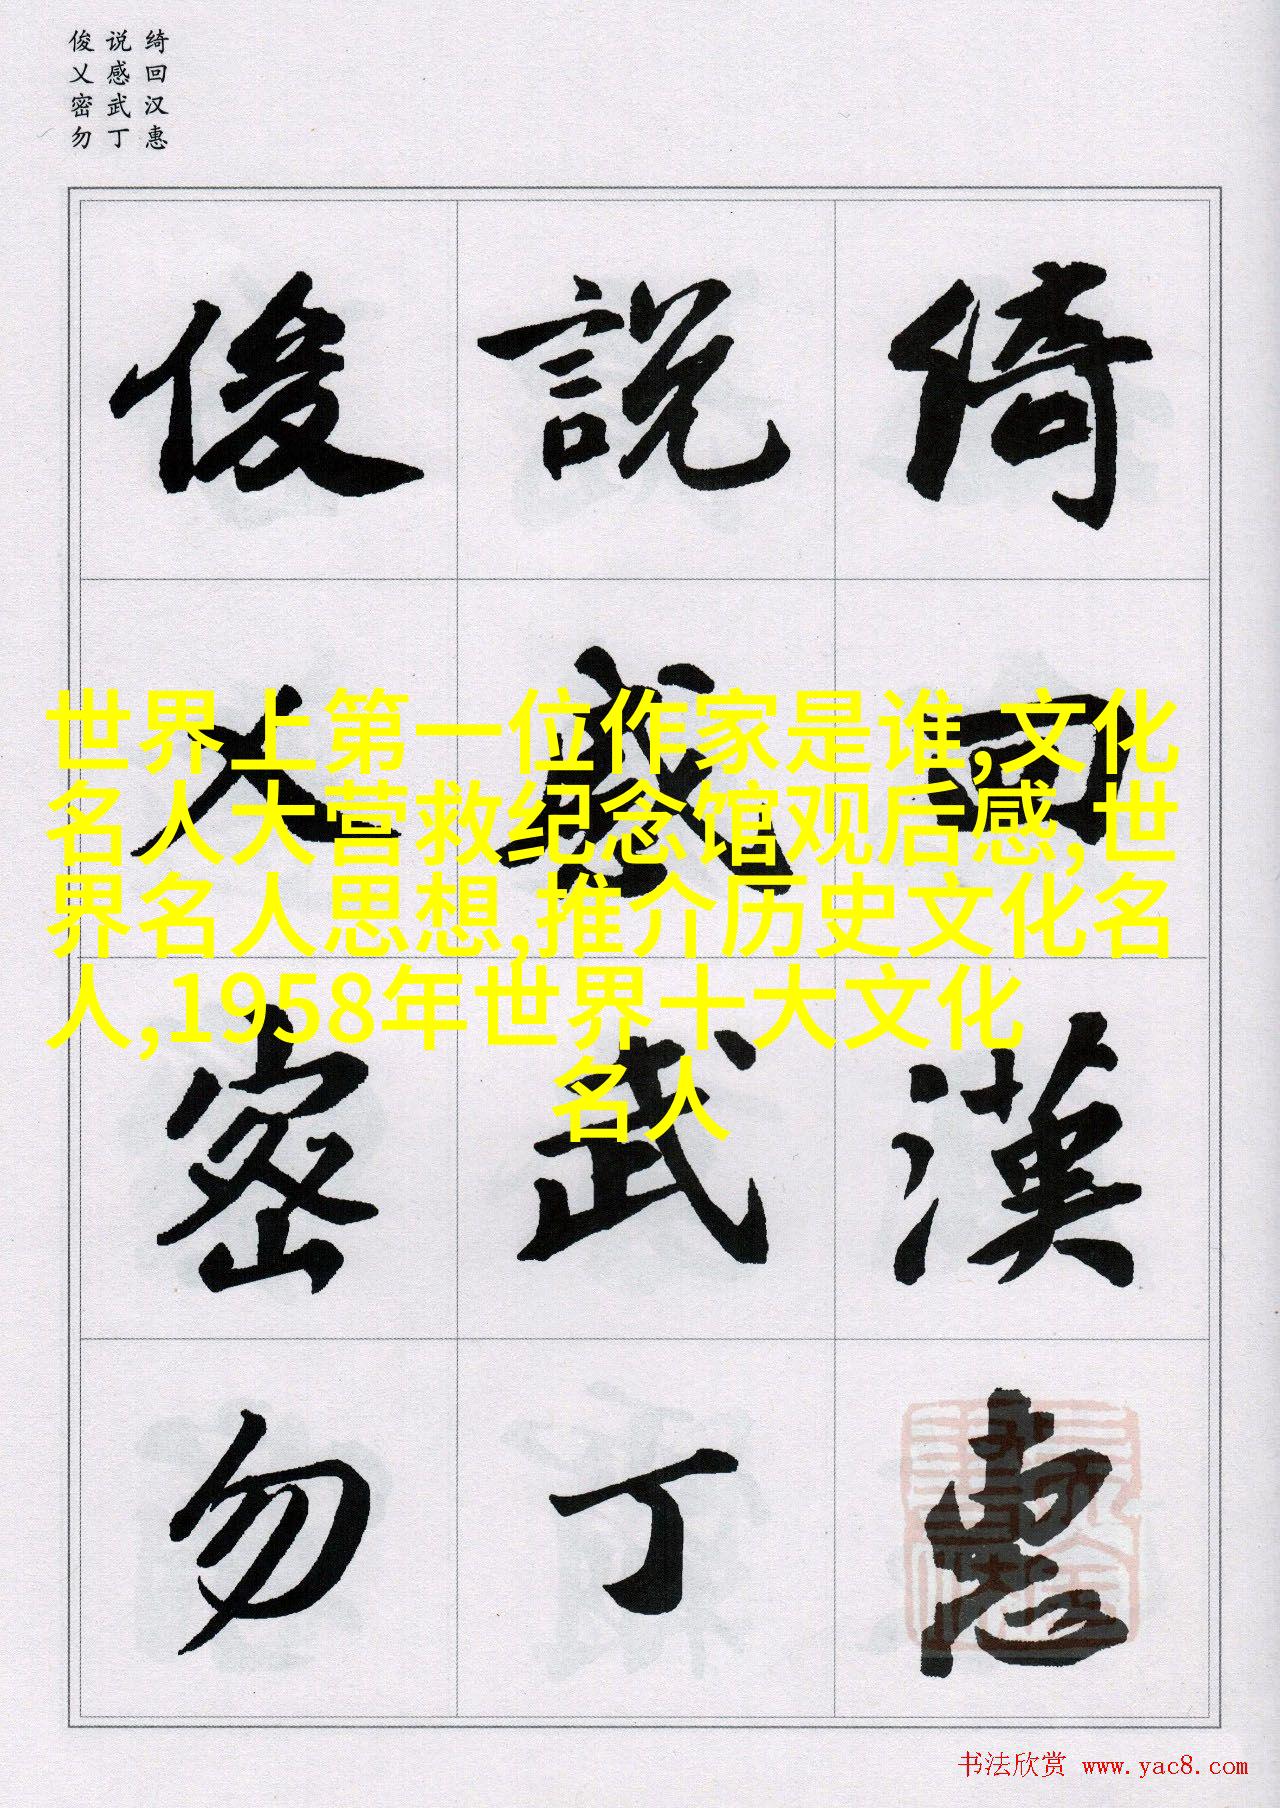 绮回汉惠
说感武丁
俊乂密勿
綺回漢惠
説感武丁
俊乂密勿
世界上第一位作家是谁,文化
名人大营救纪念馆观后感,世
界名人思想,推介历史文化名
人,1958年世界十大文化
名人
书法欣赏 www.yac8.com